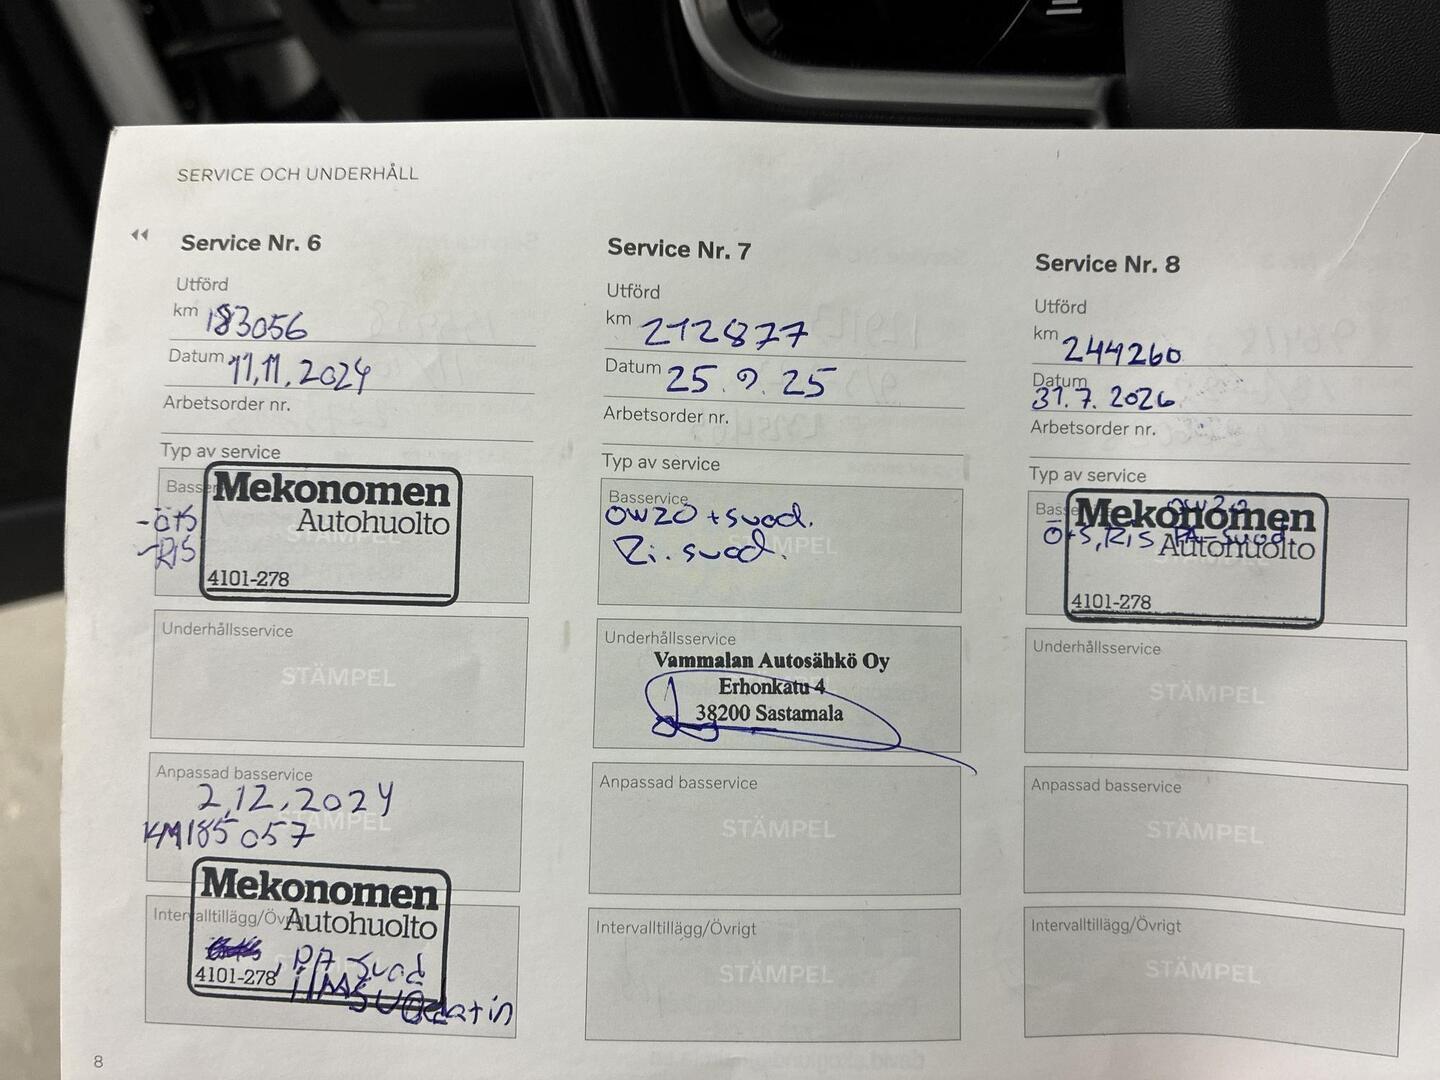 SERVICE OCH UNDERHÅLL
Service Nr. 6
Utförd
km 183056
Datum 11.11.2024
Arbetsorder nr.
Typ av service
Basservice
-ö+s
-RiS
Mekonomen
Autohuolto
4101-278
Underhållsservice
STÄMPEL
Anpassad basservice
2.12.2024
STÄMPEL
KM185057
Mekonomen
Autohuolto
Intervalltillägg/Övrigt
PA suod
4101-278
ilmsuodatin
8
Service Nr. 7
Utförd
km 212877
Datum 25.9.25
Arbetsorder nr.
Typ av service
Basservice
0W20 + suod.
Ri. suod.
STÄMPEL
Underhållsservice
Vammalan Autosähkö Oy
Erhonkatu 4
38200 Sastamala
Anpassad basservice
STÄMPEL
Intervalltillägg/Övrigt
STÄMPEL
Service Nr. 8
Utförd
km 244260
Datum
31.7.2026
Arbetsorder nr.
Typ av service
0W20
Mekonomen
ö+s, RiS PA-suod
Autohuolto
STÄMPEL
4101-278
Underhållsservice
STÄMPEL
Anpassad basservice
STÄMPEL
Intervalltillägg/Övrigt
STÄMPEL